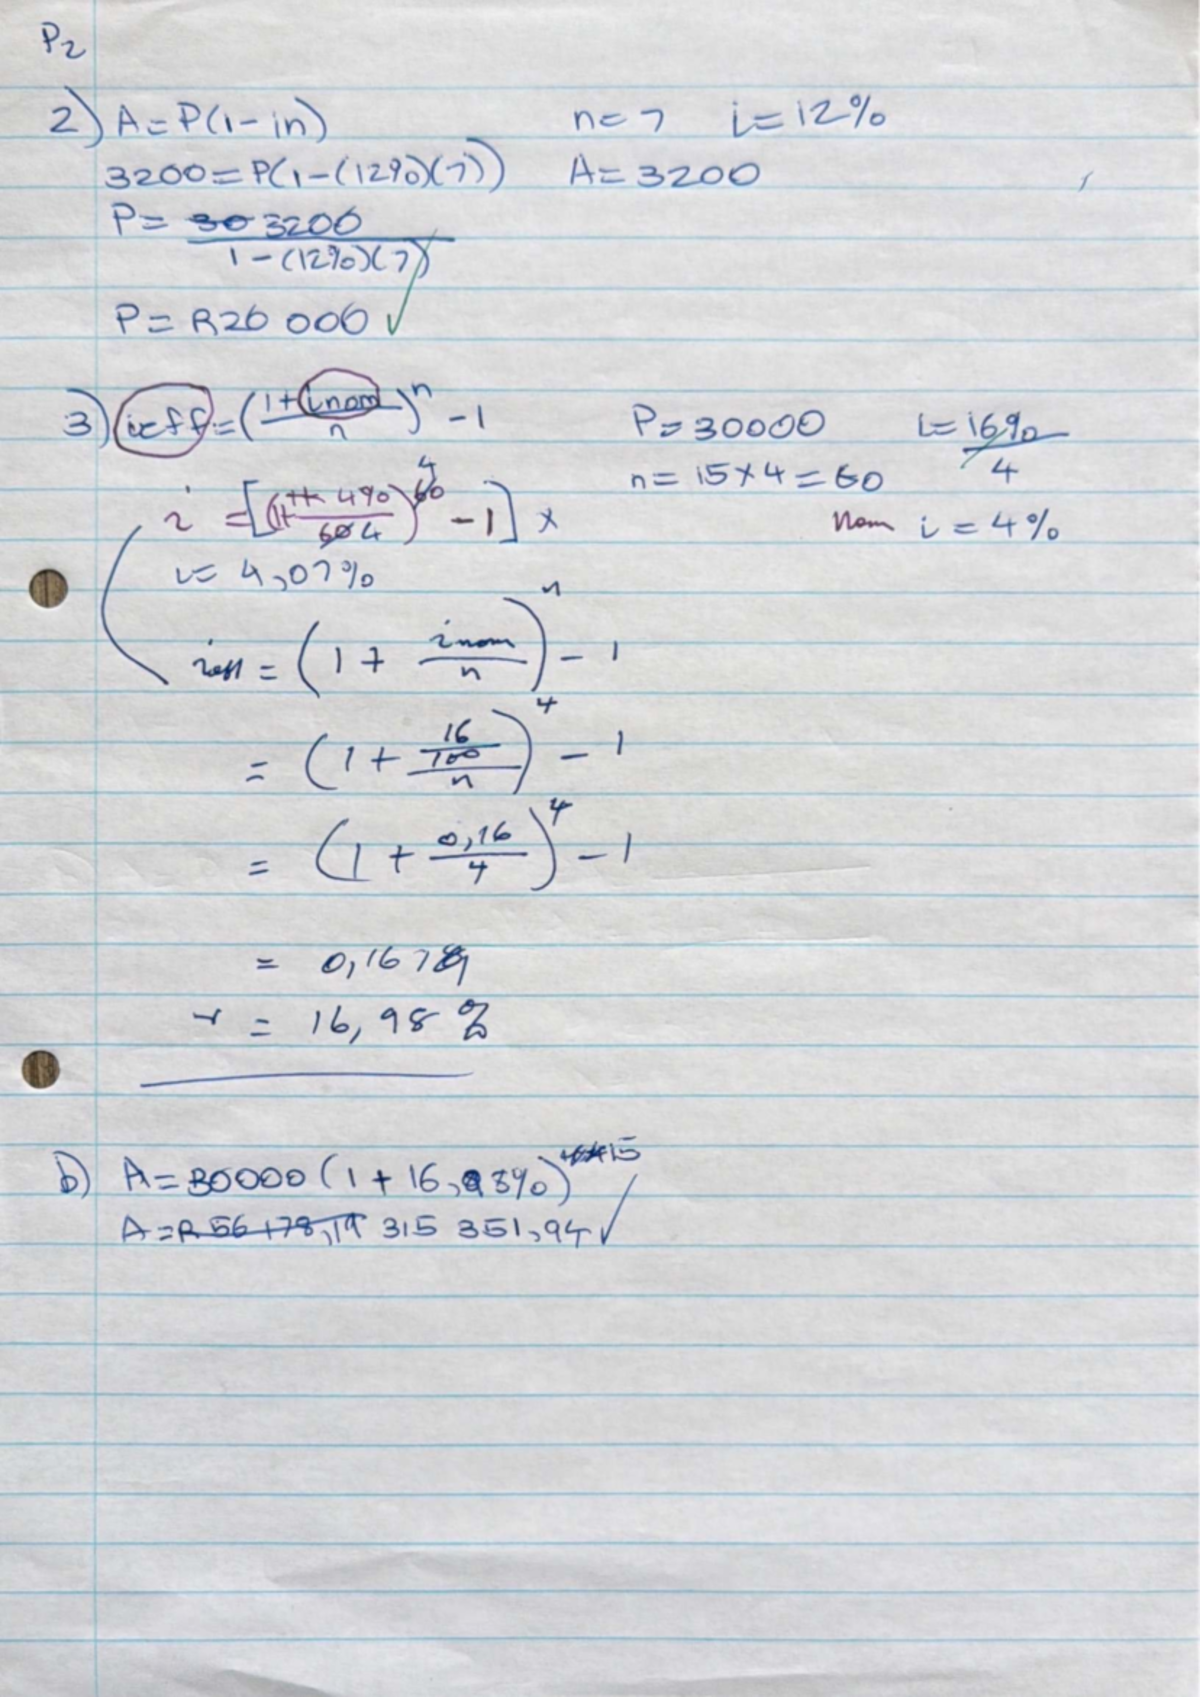 P2
2) A=P(1-in) n=7 i=12%
3200=P(1-(12%)(7)) A=3200
P= 30 3200
1-(12%)(7)
P= R20 000 ✓
3) ieff=(1+inom/n)^n -1 P=30000 i=16%/4
n=15×4=60
i =[(1+ 4%/60 4)^60 4 -1] × nom i=4%
i= 4,07%
ieff = (1 + inom/n)^n - 1
= (1 + 16/100/n)^4 - 1
= (1 + 0,16/4)^4 - 1
= 0,1679
r = 16,98 %
b) A=30000(1+16,98%)^15
A=R 56178,19 315 351,94 ✓